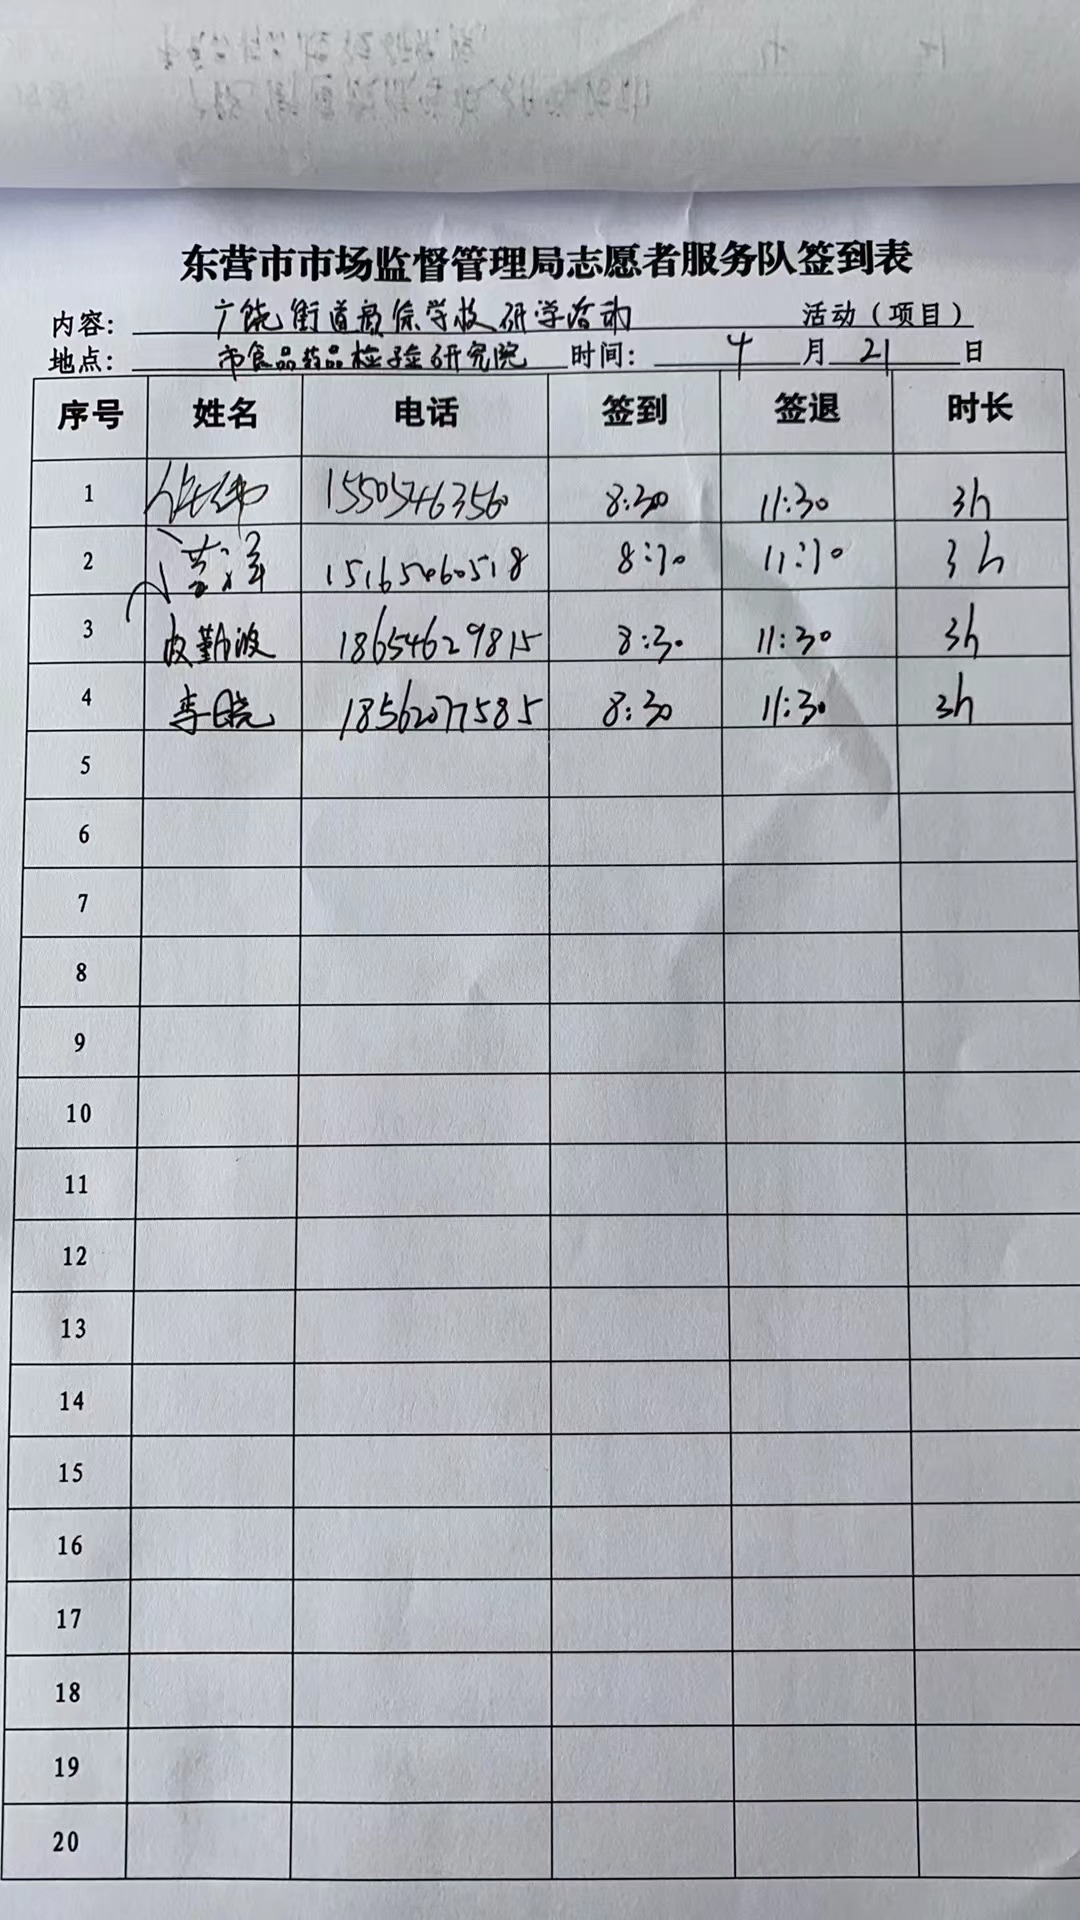 东营市市场监督管理局志愿者服务队签到表
内容：广饶街道颜徐学校研学活动 活动（项目）
地点：市食品药品检验研究院 时间：4月21日
序号 姓名 电话 签到 签退 时长
1 15505463560 8:30 11:30 3h
2 15165060518 8:30 11:30 3h
3 皮勤波 18654629815 8:30 11:30 3h
4 李晓 18562077585 8:30 11:30 3h
5
6
7
8
9
10
11
12
13
14
15
16
17
18
19
20